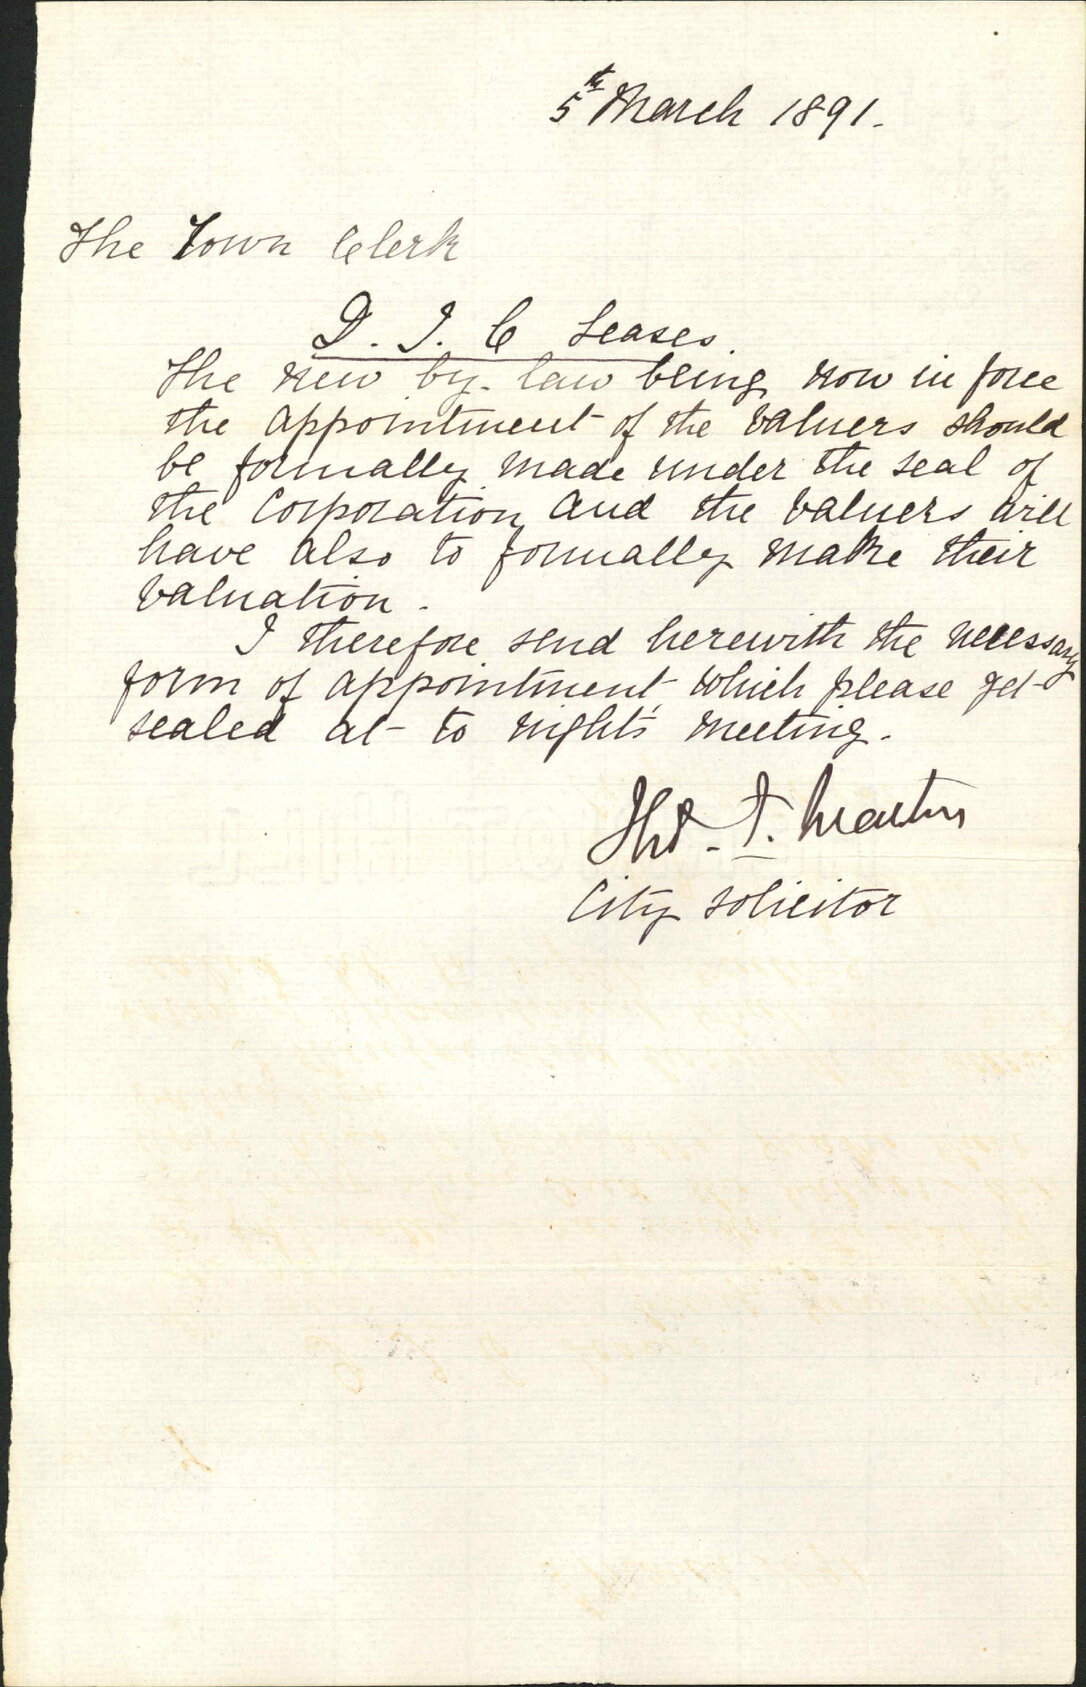 5th March 1891.
The Town Clerk
D. I. C Leases.
The new by-law being now in force
the appointment of the valuers should
be formally made under the seal of
the Corporation and the valuers will
have also to formally make their
valuation.
I therefore send herewith the necessary
form of appointment which please get
sealed at to night's meeting.
Thos. F. Martin
City Solicitor